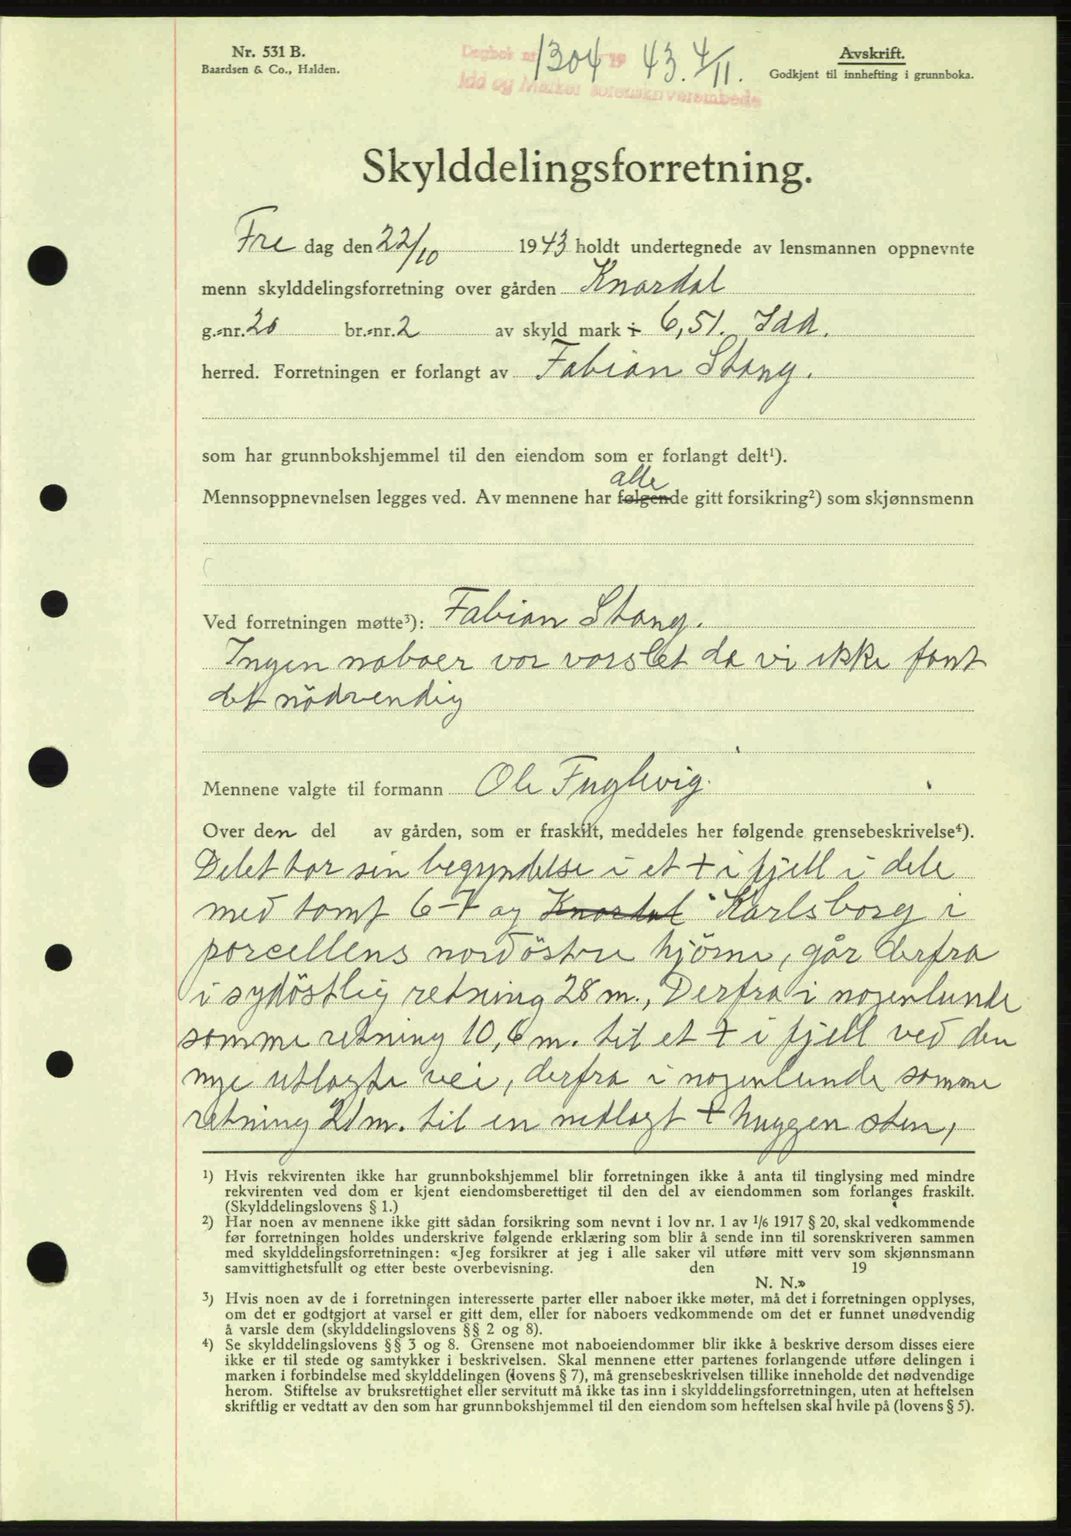 Nr. 531 B.
Baardsen & Co., Halden.
Dagbok nr. 1304 19 43. 4/11.
Idd og Marker sorenskriverembede
Avskrift.
Godkjent til innhefting i grunnboka.
Skylddelingsforretning.
Fre dag den 22/10 1943 holdt undertegnede av lensmannen oppnevnte
menn skylddelingsforretning over gården Knardal
g.-nr. 20 br.-nr. 2 av skyld mark 6,51. Idd.
herred. Forretningen er forlangt av Fabian Stang.
som har grunnbokshjemmel til den eiendom som er forlangt delt¹).
alle
Mennsoppnevnelsen legges ved. Av mennene har følgende gitt forsikring²) som skjønnsmenn
Ved forretningen møtte³): Fabian Stang.
Ingen naboer var varslet da vi ikke fant
det nödvendig
Mennene valgte til formann Ole Fuglevig.
Over den del av gården, som er fraskilt, meddeles her følgende grensebeskrivelse⁴).
Delet tar sin begyndelse i et + i fjell i dele
med tomt 6-7 og Knardal "Karlsborg i
porcellens nordöstre hjörne, går derfra
i sydöstlig retning 28 m., Derfra i nogenlunde
samme retning 10,6 m. til et + i fjell ved den
nye utlagte vei, derfra i nogenlunde samme
retning 21 m. til en nedlagt + huggen sten,
¹) Hvis rekvirenten ikke har grunnbokshjemmel blir forretningen ikke å anta til tinglysing med mindre
rekvirenten ved dom er kjent eiendomsberettiget til den del av eiendommen som forlanges fraskilt.
(Skylddelingslovens § 1.)
²) Har noen av mennene ikke gitt sådan forsikring som nevnt i lov nr. 1 av 1/6 1917 § 20, skal vedkommende
før forretningen holdes underskrive følgende erklæring som blir å sende inn til sorenskriveren sammen
med skylddelingsforretningen: «Jeg forsikrer at jeg i alle saker vil utføre mitt verv som skjønnsmann
samvittighetsfullt og etter beste overbevisning. den 19
N. N.»
³) Hvis noen av de i forretningen interesserte parter eller naboer ikke møter, må det i forretningen opplyses,
om det er godtgjort at varsel er gitt dem, eller for naboers vedkommende om det er funnet unødvendig
å varsle dem (skylddelingslovens §§ 2 og 8).
⁴) Se skylddelingslovens §§ 3 og 8. Grensene mot naboeiendommer blir ikke å beskrive dersom disses eiere
ikke er til stede og samtykker i beskrivelsen. Skal mennene etter partenes forlangende utføre delingen i
marken i forbindelse med skylddelingen (lovens § 7), må grensebeskrivelsen tillike inneholde det nødvendige
herom. Stiftelse av bruksrettighet eller servitutt må ikke tas inn i skylddelingsforretningen, uten at heftelsen
skriftlig er vedtatt av den som har grunnbokshjemmel til den eiendom som heftelsen skal hvile på (lovens § 5).